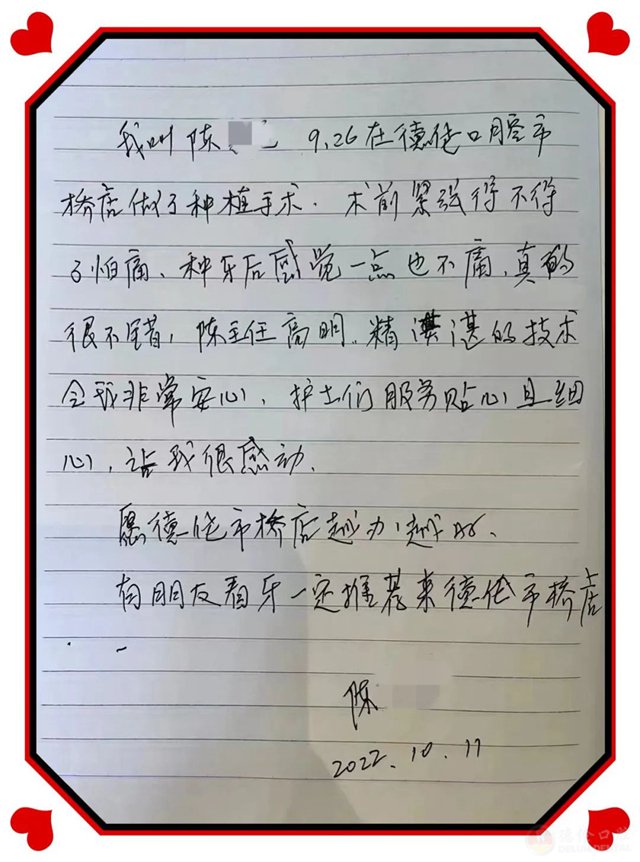 我叫陈 9.26在德伦口腔市
桥店做了种植手术. 术前紧张得不得
了怕痛、种牙后感觉一点也不痛、真的
很不错, 陈主任高明. 精湛的技术
令我非常安心、护士们服务贴心且细
心, 让我很感动.
愿德伦市桥店越办越好、
有朋友看牙一定推荐来德伦市桥店
陈
2022.10.11
德伦口腔